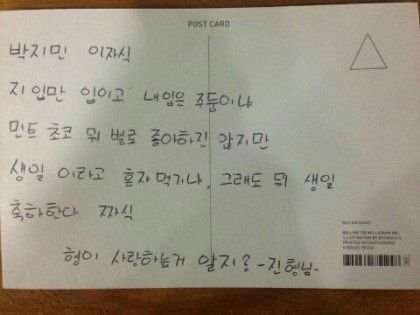 POST CARD
박지민 이자식
지 입만 입이고 내입은 주둥이냐
민트 초코 뭐 별로 좋아하진 않지만
생일 이라고 혼자 먹기냐, 그래도 뭐 생일
축하한다 짜식
형이 사랑하는거 알지? -진형님-
PRINTED IN SOUTH KOREA